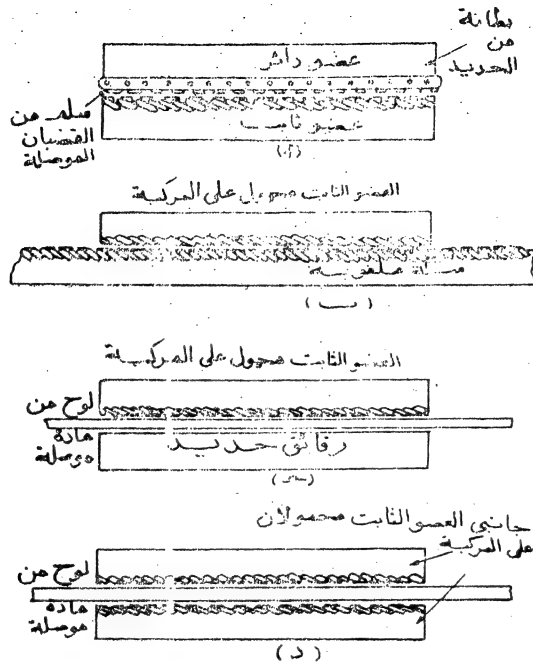 بطانة
من
الحديد
عضو دائر
سلم من
القضبان
الموصلة
عضو ثابت
(أ)
العضو الثابت محمول على المركبة
سكة ملفوفة
(ب)
العضو الثابت محمول على المركبة
لوح من
مادة
موصلة
رقائق حديد
(حـ)
جانبي العضو الثابت محمولان
على المركبة
لوح من
مادة
موصلة
(د)